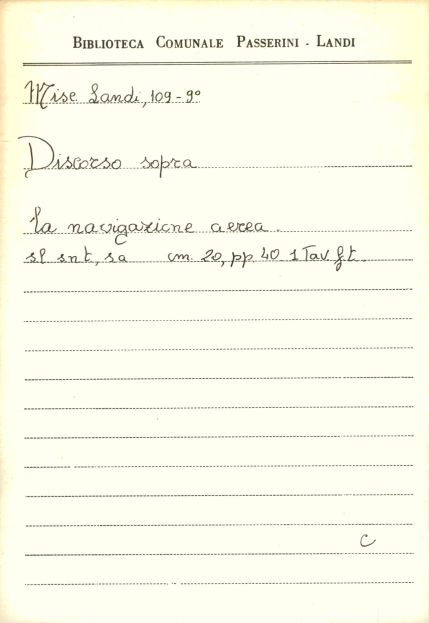 BIBLIOTECA COMUNALE PASSERINI - LANDI
Misc Landi, 109-9°
Discorso sopra
la navigazione aerea.
sl snt, sa cm. 20, pp 40 1 Tav. f.t.
C